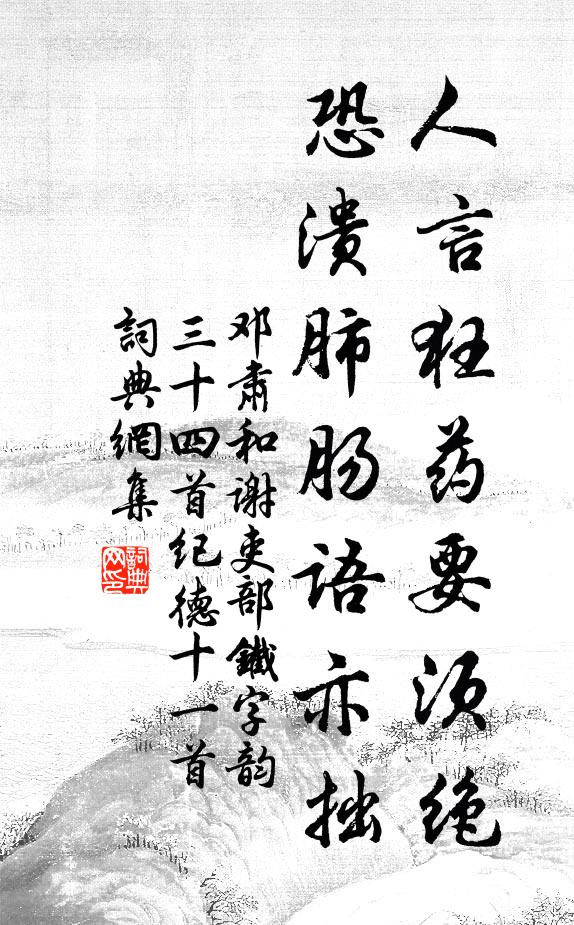 人言狂药要须绝
恐溃肺肠语亦拙
邓肃和谢吏部鐵字韵
三十四首纪德十一首
詞典網集
詞典网印